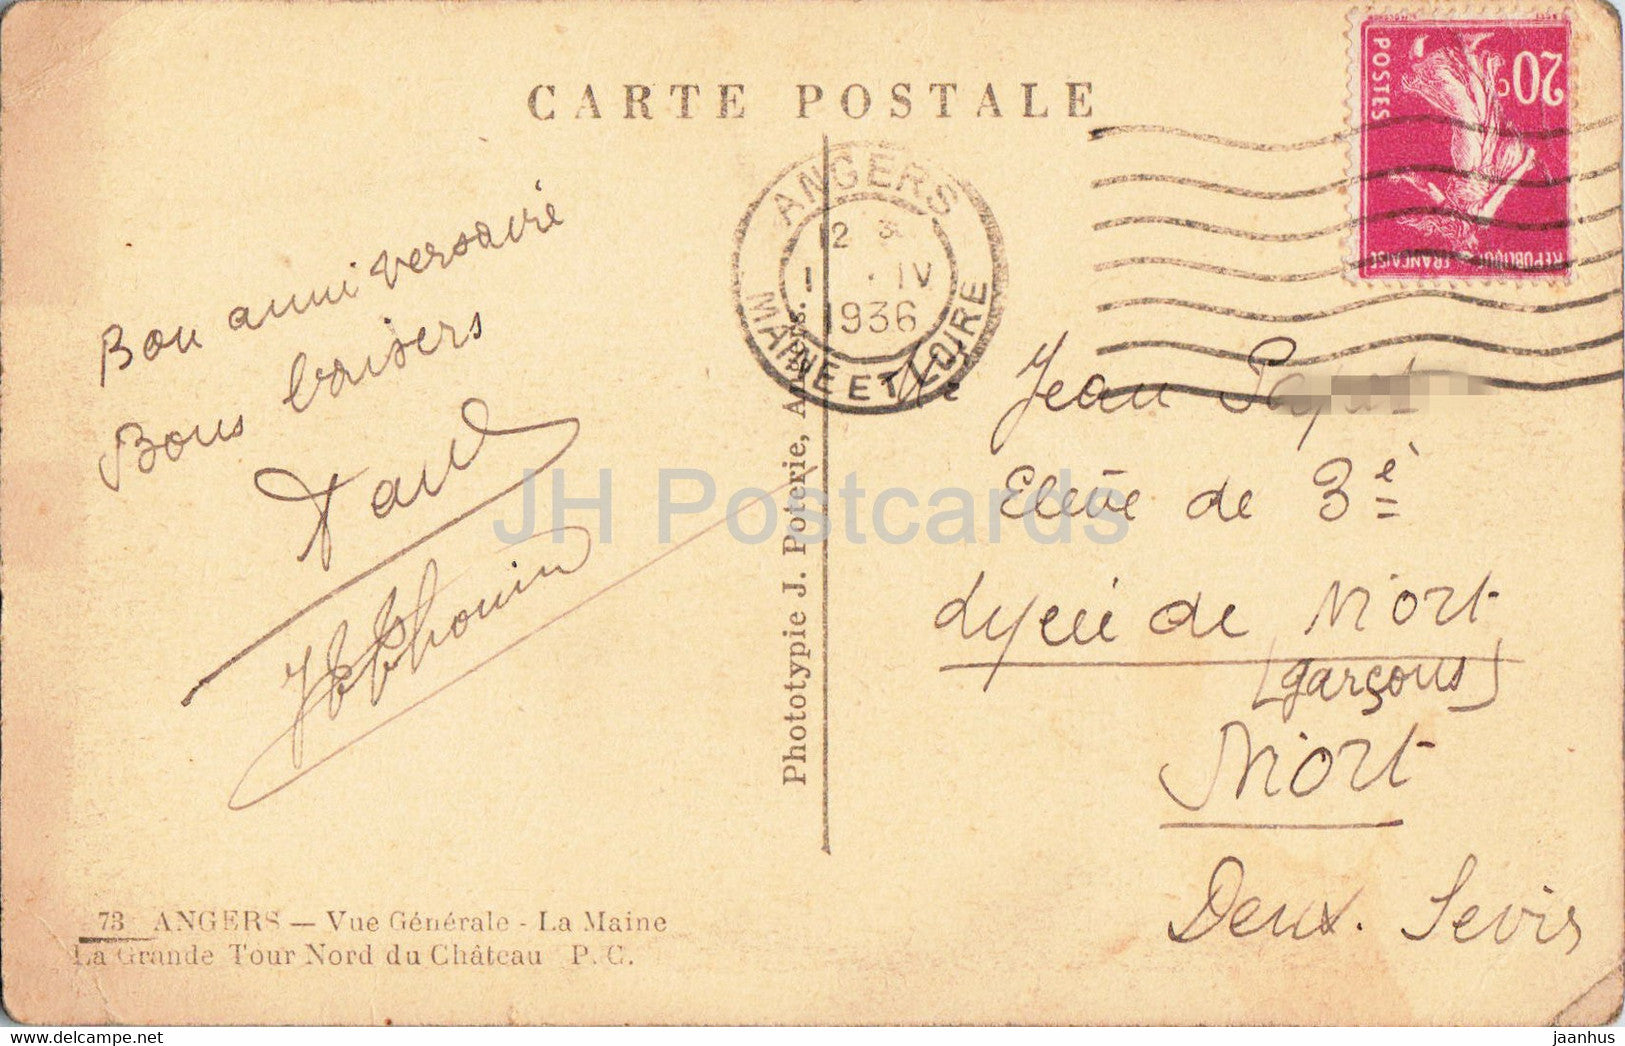 CARTE POSTALE
20c
POSTES
REPUBLIQUE FRANÇAISE
ANGERS
12
IV
1936
MAINE ET LOIRE
Bon anniversaire
Bons baisers
JH Postcards
Phototypie J. Poterie, Angers.
Jean
Elève de 3e
Lycée de Niort
(garçons)
Niort
Deux. Sevres
73 ANGERS — Vue Générale - La Maine
La Grande Tour Nord du Château P. C.
jaanhus